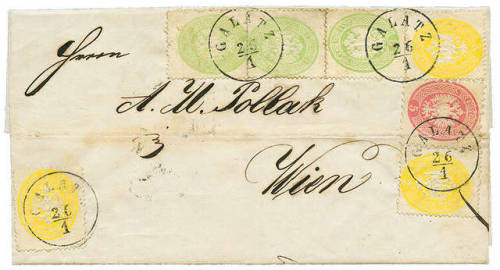 GALATZ
26
1
GALATZ
26
1
Herrn
A. M. Pollak
GALATZ
26
1
Wien
GALATZ
26
1